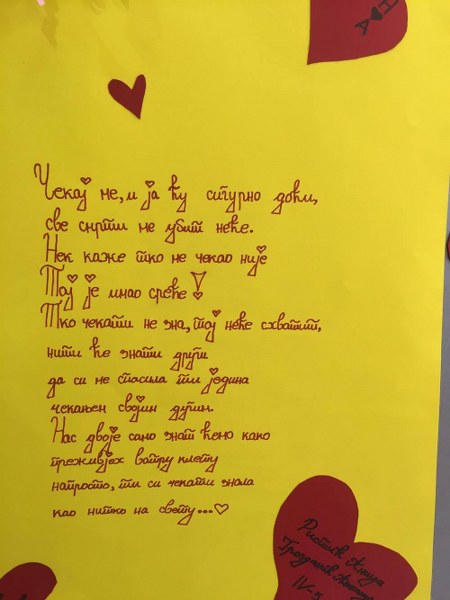 Чекај ме, и ја ћу сигурно доћи,
све смрти ме убит неће.
Нек каже тко ме чекао није
Тој је имао среће!
Тко чекати не зна, тој неће схватит,
нити ће знати други
да си ме спасила ти једина
чекањем својим дугим.
Нас двоје само знат ћемо како
преживјех ватру клету
напросто, ти си чекати знала
као нитко на свету...
Н А
IV-5